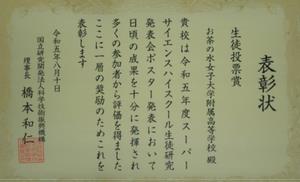 表彰状
生徒投票賞
お茶の水女子大学附属高等学校 殿
貴校は令和五年度スーパー
サイエンスハイスクール生徒研究
発表会ポスター発表において
日頃の成果を十分に発揮され
多くの参加者から評価を得ました
ここに一層の奨励のためこれを
表彰します
令和五年八月十日
国立研究開発法人科学技術振興機構
理事長 橋本和仁